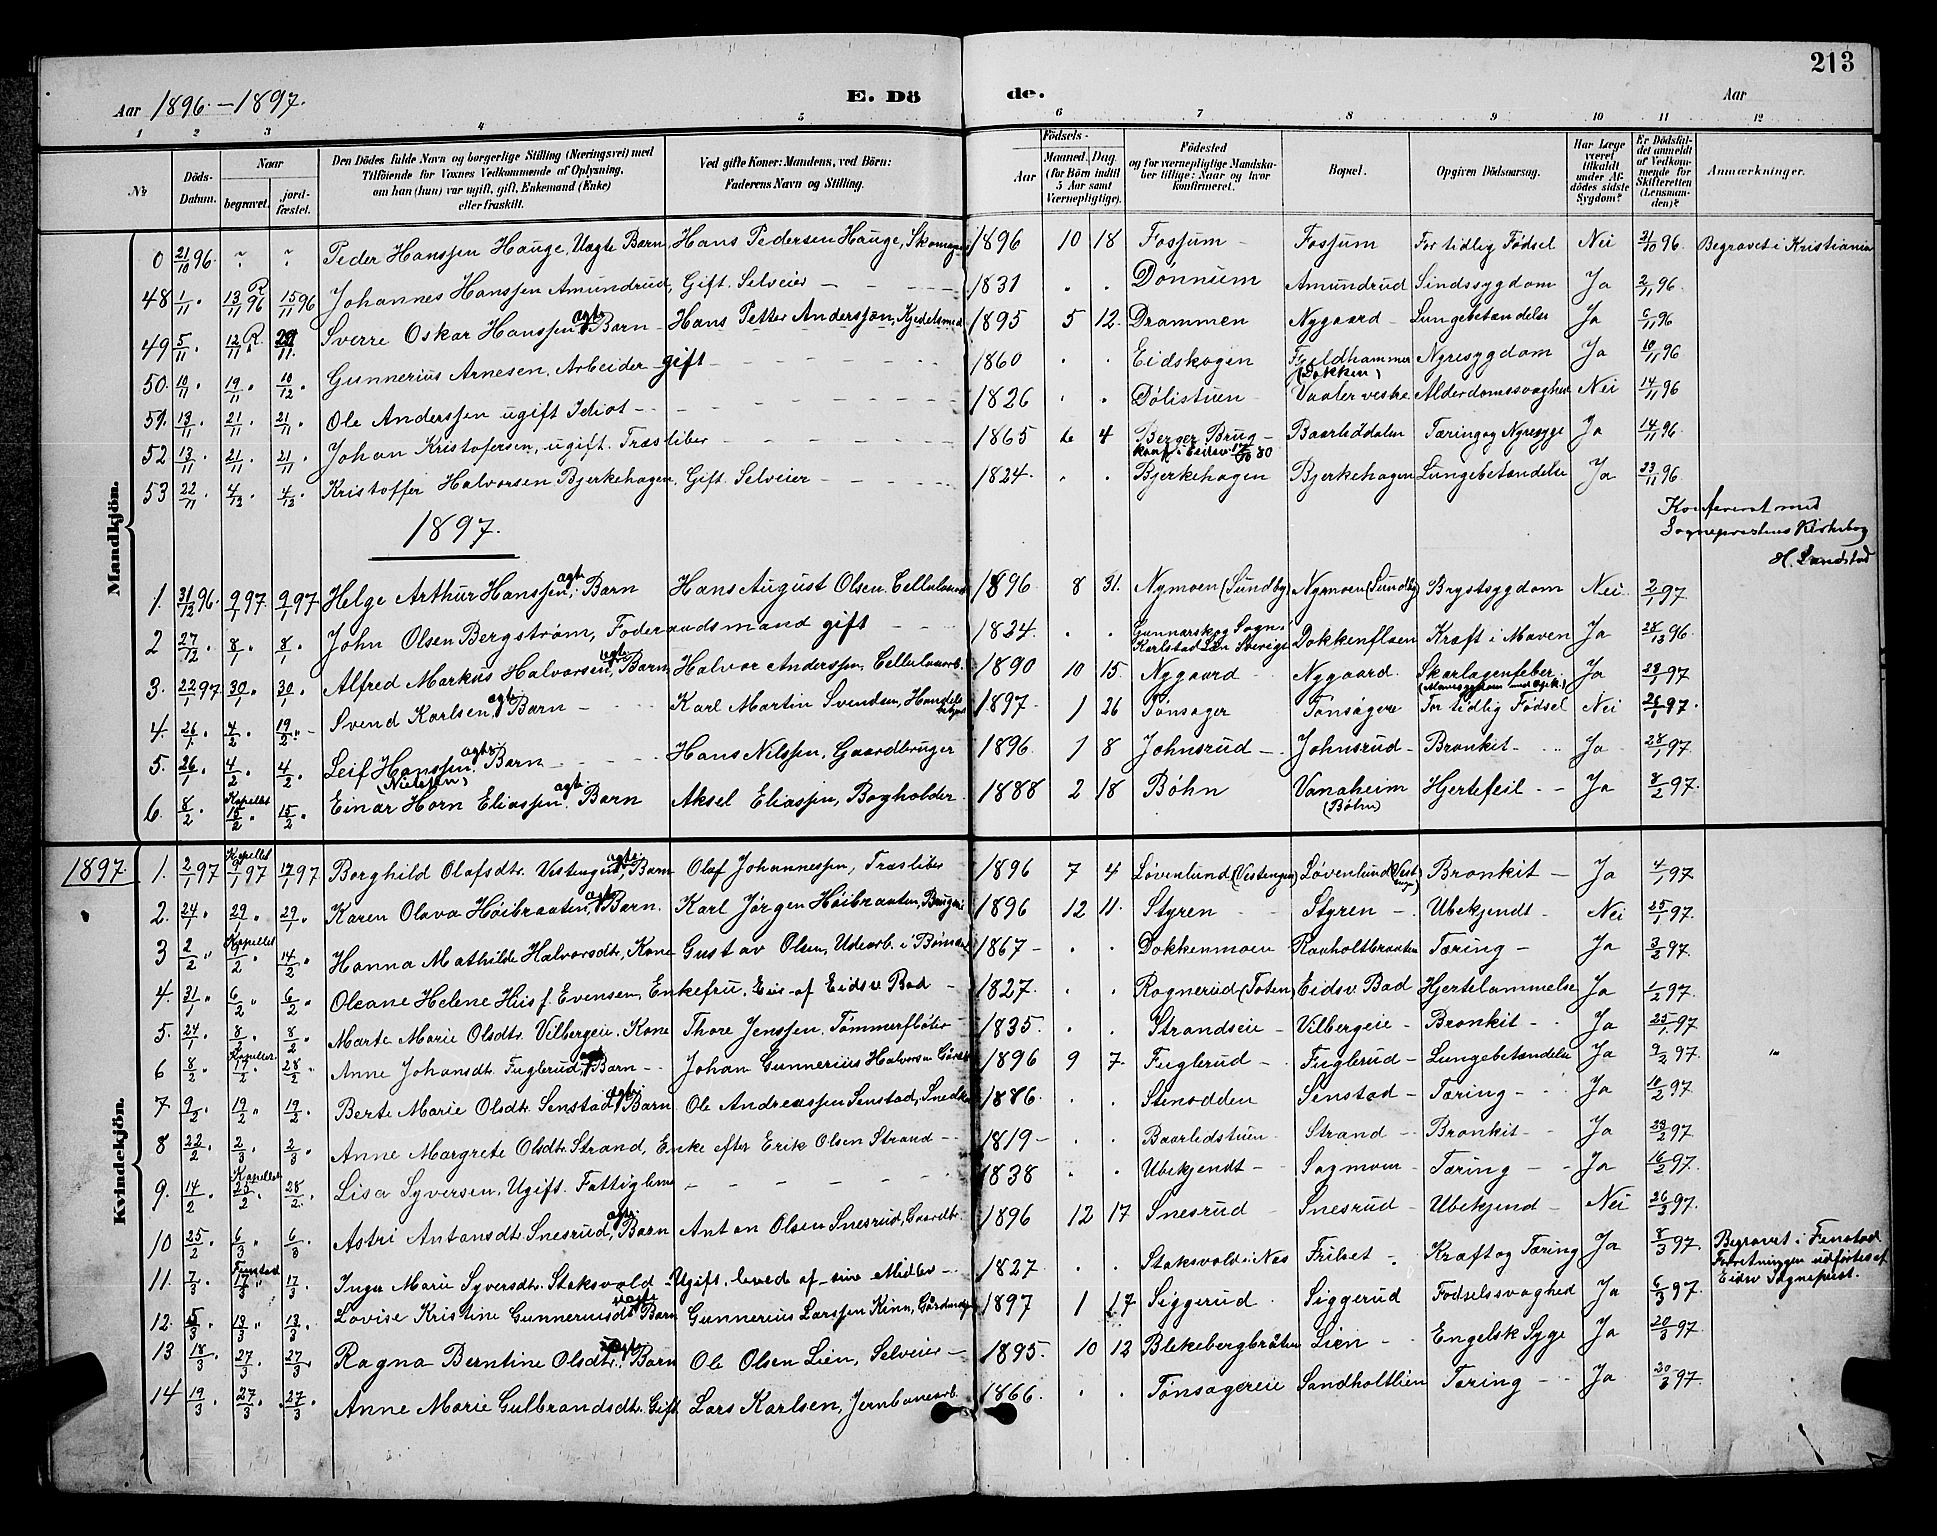 213
Aar 1896.–1897. E. Dö de. Aar
1 2 3 4 5 6 7 8 9 10 11 12
№ Döds-Datum. Naar begravet. jordfæstet. Den Dödes fulde Navn og borgerlige Stilling (Næringsvei) med Tilföiende for Voxnes Vedkommende af Oplysning, om han (hun) var ugift, gift, Enkemand (Enke) eller fraskilt. Ved gifte Koner: Mandens, ved Börn: Faderens Navn og Stilling. Födsels- Aar Maaned. Dag. (for Börn indtil 5 Aar samt Værnepligtige). Födested og for værnepligtige Mandskaber tillige: Naar og hvor konfirmeret. Bopæl. Opgiven Dödsaarsag. Har Læge været tilkaldt under Afdödes sidste Sygdom? Er Dödsfaldet anmeldt af Vedkommende for Skifteretten (Lensmanden)? Anmærkninger.
Mandkjön.
0 21/10 96. " " Peder Hanssen Hauge, Uægte Barn, Hans Pedersen Hauge, Skomager 1896 10 18 Fossum – Fossum For tidlig Fødsel Nei 21/10 96. Begravet i Kristiania
48 1/11 " 13/11 96 R 15/11 96 Johannes Hanssen Amundrud, Gift. Selveier – – 1831 " " Donnum Amundrud Sindssygdom Ja 2/11 96.
49 5/11 " 12/11 " R 29/11 " Sverre Oskar Hanssen, ægte Barn – Hans Petter Anderssøn, Kjedelsmed 1895 5 12. Drammen Nygaard – Lungebetændelse Ja 6/11 96
50. 10/11 " 19/11 " 10/12 " Gunnerius Arnesen, Arbeider – gift – – 1860 " " Eidskogen Fjeldhammer (Dokken) Nyresygdom Ja 10/11 96
51. 13/11 " 21/11 " 21/11 " Ole Anderssen ugift Idiot – – 1826 " " Dølistuen – Vaalerveske Alderdomssvaghed Nei 14/11 96
52 13/11 " 21/11 " 21/11 " Johan Kristofersen, ugift. Træsliber – – 1865 6 4 Berger Brug – konf. i Eidsv. 17/10 80 Baarlidalen Tæring og Nyresyge Ja 14/11 96.
53 22/11 " 4/12 " 4/12 " Kristoffer Halvorsen Bjerkehagen, Gift. Selveier – – 1824. " " Bjerkehagen Bjerkehagen Lungebetændelse Ja 23/11 96
Konfereret med
Sogneprestens Kirkebog
H. Landstad
1897.
1. 31/12 96. 9/1 97 9/1 97 Helge Arthur Hanssen, ægt. Barn Hans August Olsen Cellulosearb 1896. 8 31. Nymoen (Sundby) Nymoen (Sundby) Brystsygdom Nei 2/1 97.
2 27/12 " 8/1 " 8/1 " John Olsen Bergstrøm, Foderaadsmand gift – – 1824. " " Gunnarskog Sogn, Karlstad Län Sverige Dokkenfloen Kræft i Maven Ja 28/12 96.
3. 22/1 97 30/1 " 30/1 " Alfred Markus Halvorsen, ægte Barn Halvor Anderssen, Cellulosearb. 1890 10 15. Nygaard – Nygaard. Skarlagenfeber Ja 23/1 97
4. 26/1. " 4/2 " 19/2 " – Svend Karlsen, ægt. Barn – – Karl Martin Svendsen, Handelsbetjent 1897. 1 26 Tønsager Tønsager For tidlig Fødsel Nei 26/1 97.
5. 26/1 " 4/2 " 4/2 " Leif Hanssen (Nielsen), ægte Barn – – Hans Nilssen, Gaardbruger 1896. 1 8 Johnsrud – Johnsrud – Bronkit – Ja 28/1 97.
6. 8/2 " Kapellet 15/2 " 15/2 " Einar Horn Eliassen, ægt. Barn Aksel Eliassen, Bogholder 1888 2 18 Bøhn Vanaheim (Bøhn) Hjertefeil – – Ja 8/2 97.
1897
Kvindekjön.
1. 2/1 97 Kapellet 9/1 97 17/1 97 Borghild Olafsdtr. Vestengen, ægte Barn Olaf Johannessen, Træsliber 1896 7 4 Løvenlund (Vestengen) Løvenlund (Vestengen) Bronkit – Ja 4/1 97.
2. 24/1 " 29/1 " 29/1 " Karen Olava Høibraaten, ægt. Barn. Karl Jørgen Høibraaten, 1896 12 11. Styren – Styren – Ubekjendt – Nei 25/1 97.
3 2/2 " Kapellet 9/2 " 14/2 " Hanna Mathilde Halvorsdtr, Kone Gustav Olsen, 1867 – " " Dokkenmoen Raaholtbraaten Tæring – Ja 3/2 97.
4. 31/1 " 6/2 " 6/2 " Oleane Helene Hiis f. Evensen, Enkefru, Eier af Eidsv Bad – 1827. " " Rognerud (Toten) Eidsv Bad Hjertelammelse Ja 1/2 97.
5. 24/1 " 8/2 " 8/2 " Marte Marie Olsdtr. Vilbergeie. Kone Thore Jenssen, Tømmerfløter – 1835. " " Strandseie – Vilbergeie – Bronkit – Ja 25/1 97
6 8/2 " Kapellet 17/2 " 28/2 " Anne Johansdtr Fuglerud, ægt. Barn – Johan Gunnerius Halvorsen 1896 9 7. Fuglerud – Fuglerud – Lungebetændelse Ja 9/2 97. "
7 9/2 " 19/2 " 19/2 " Berte Marie Olsdtr. Senstad, ægt. Barn Ole Andreassen Senstad, Snedker 1886. " " Stenodden Senstad – Tæring – Ja 10/2 97.
8 22/2 " 2/3 " 2/3 " Anne Margrete Olsdtr Strand, Enke efter Erik Olsen Strand – 1819 – " " Baarlidstuen Strand – Bronkit – Ja 23/2 97.
9. 14/2 " Kapellet 25/2 " 28/2 " Lisa Syversen. Ugift. Fattiglem – – 1838 " " Ubekjendt – Sagmoen – Tæring – – Ja 16/2 97.
10 25/2 " 6/3 " 6/3 " Astri Antonsdtr Snesrud, ægt. Barn Anton Olsen Snesrud, Gaardbr. 1896 12 17 Snesrud Snesrud – Ubekjend – Nei 26/3 97.
11. 7/3 " Fenstad 17/3 " 17/3 " Inger Marie Syversdtr. Staksvold – Ugift. levede af sine Midler – 1827. " " Staksvold i Nes Frilset – Kræft og Tæring Ja 8/3 97. Begravet i Fenstad Forretningen udførtes af Eidsv Sogneprest.
12. 5/3 " 13/3 " 13/3 " Lovise Kristine Gunneriusdtr. uægt Barn Gunnerius Larssen Kinn, 1897 1 17 Siggerud Siggerud Fødselssvaghed Ja 6/3 97.
13 18/3 " 27/3 " 27/3 " Ragna Berntine Olsdtr. ægt. Barn Ole Olsen Lien, Selveier – 1895. 10 12 Blekebergbråten Lien – Engelsk Syge Ja 20/3 97.
14 19/3 " 27/3 " 27/3 " Anne Marie Gulbrandsdtr. Gift Lars Karlsen, Jernbanearb. 1866. " " Tønsagereie Sandholtlien Tæring – Ja 20/3 97